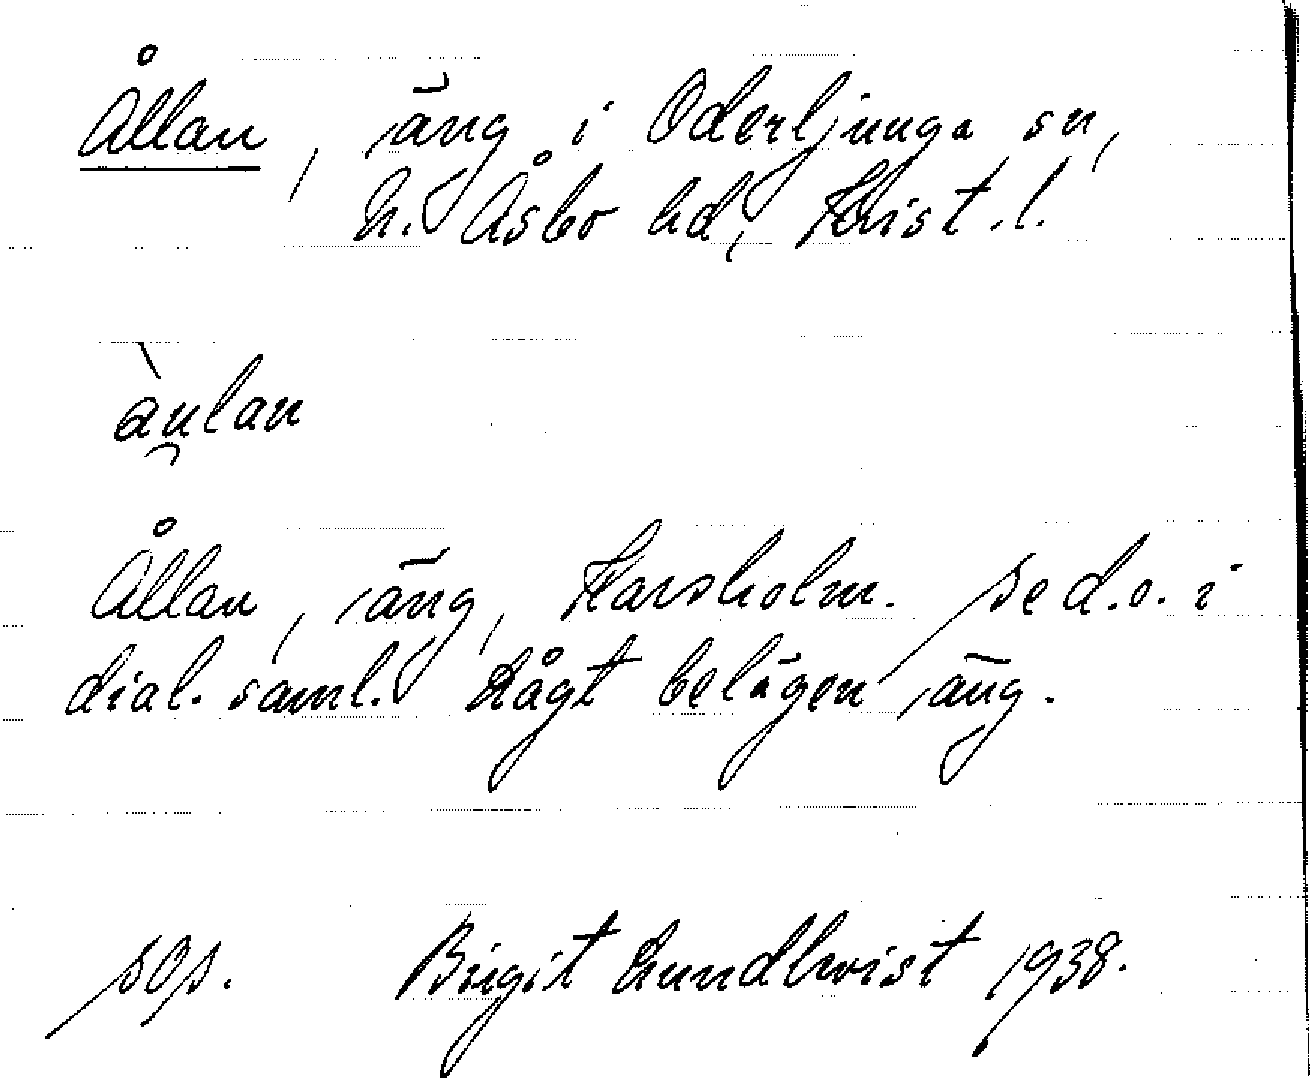 Ållan, äng i Oderljunga sn,
N. Åsbo hd, Krist. l.
àu̯lan
Ållan, äng, Harsholm. se d.o. i
dial. saml. Lågt belägen äng.
sop. Birgit Lundkvist 1938.